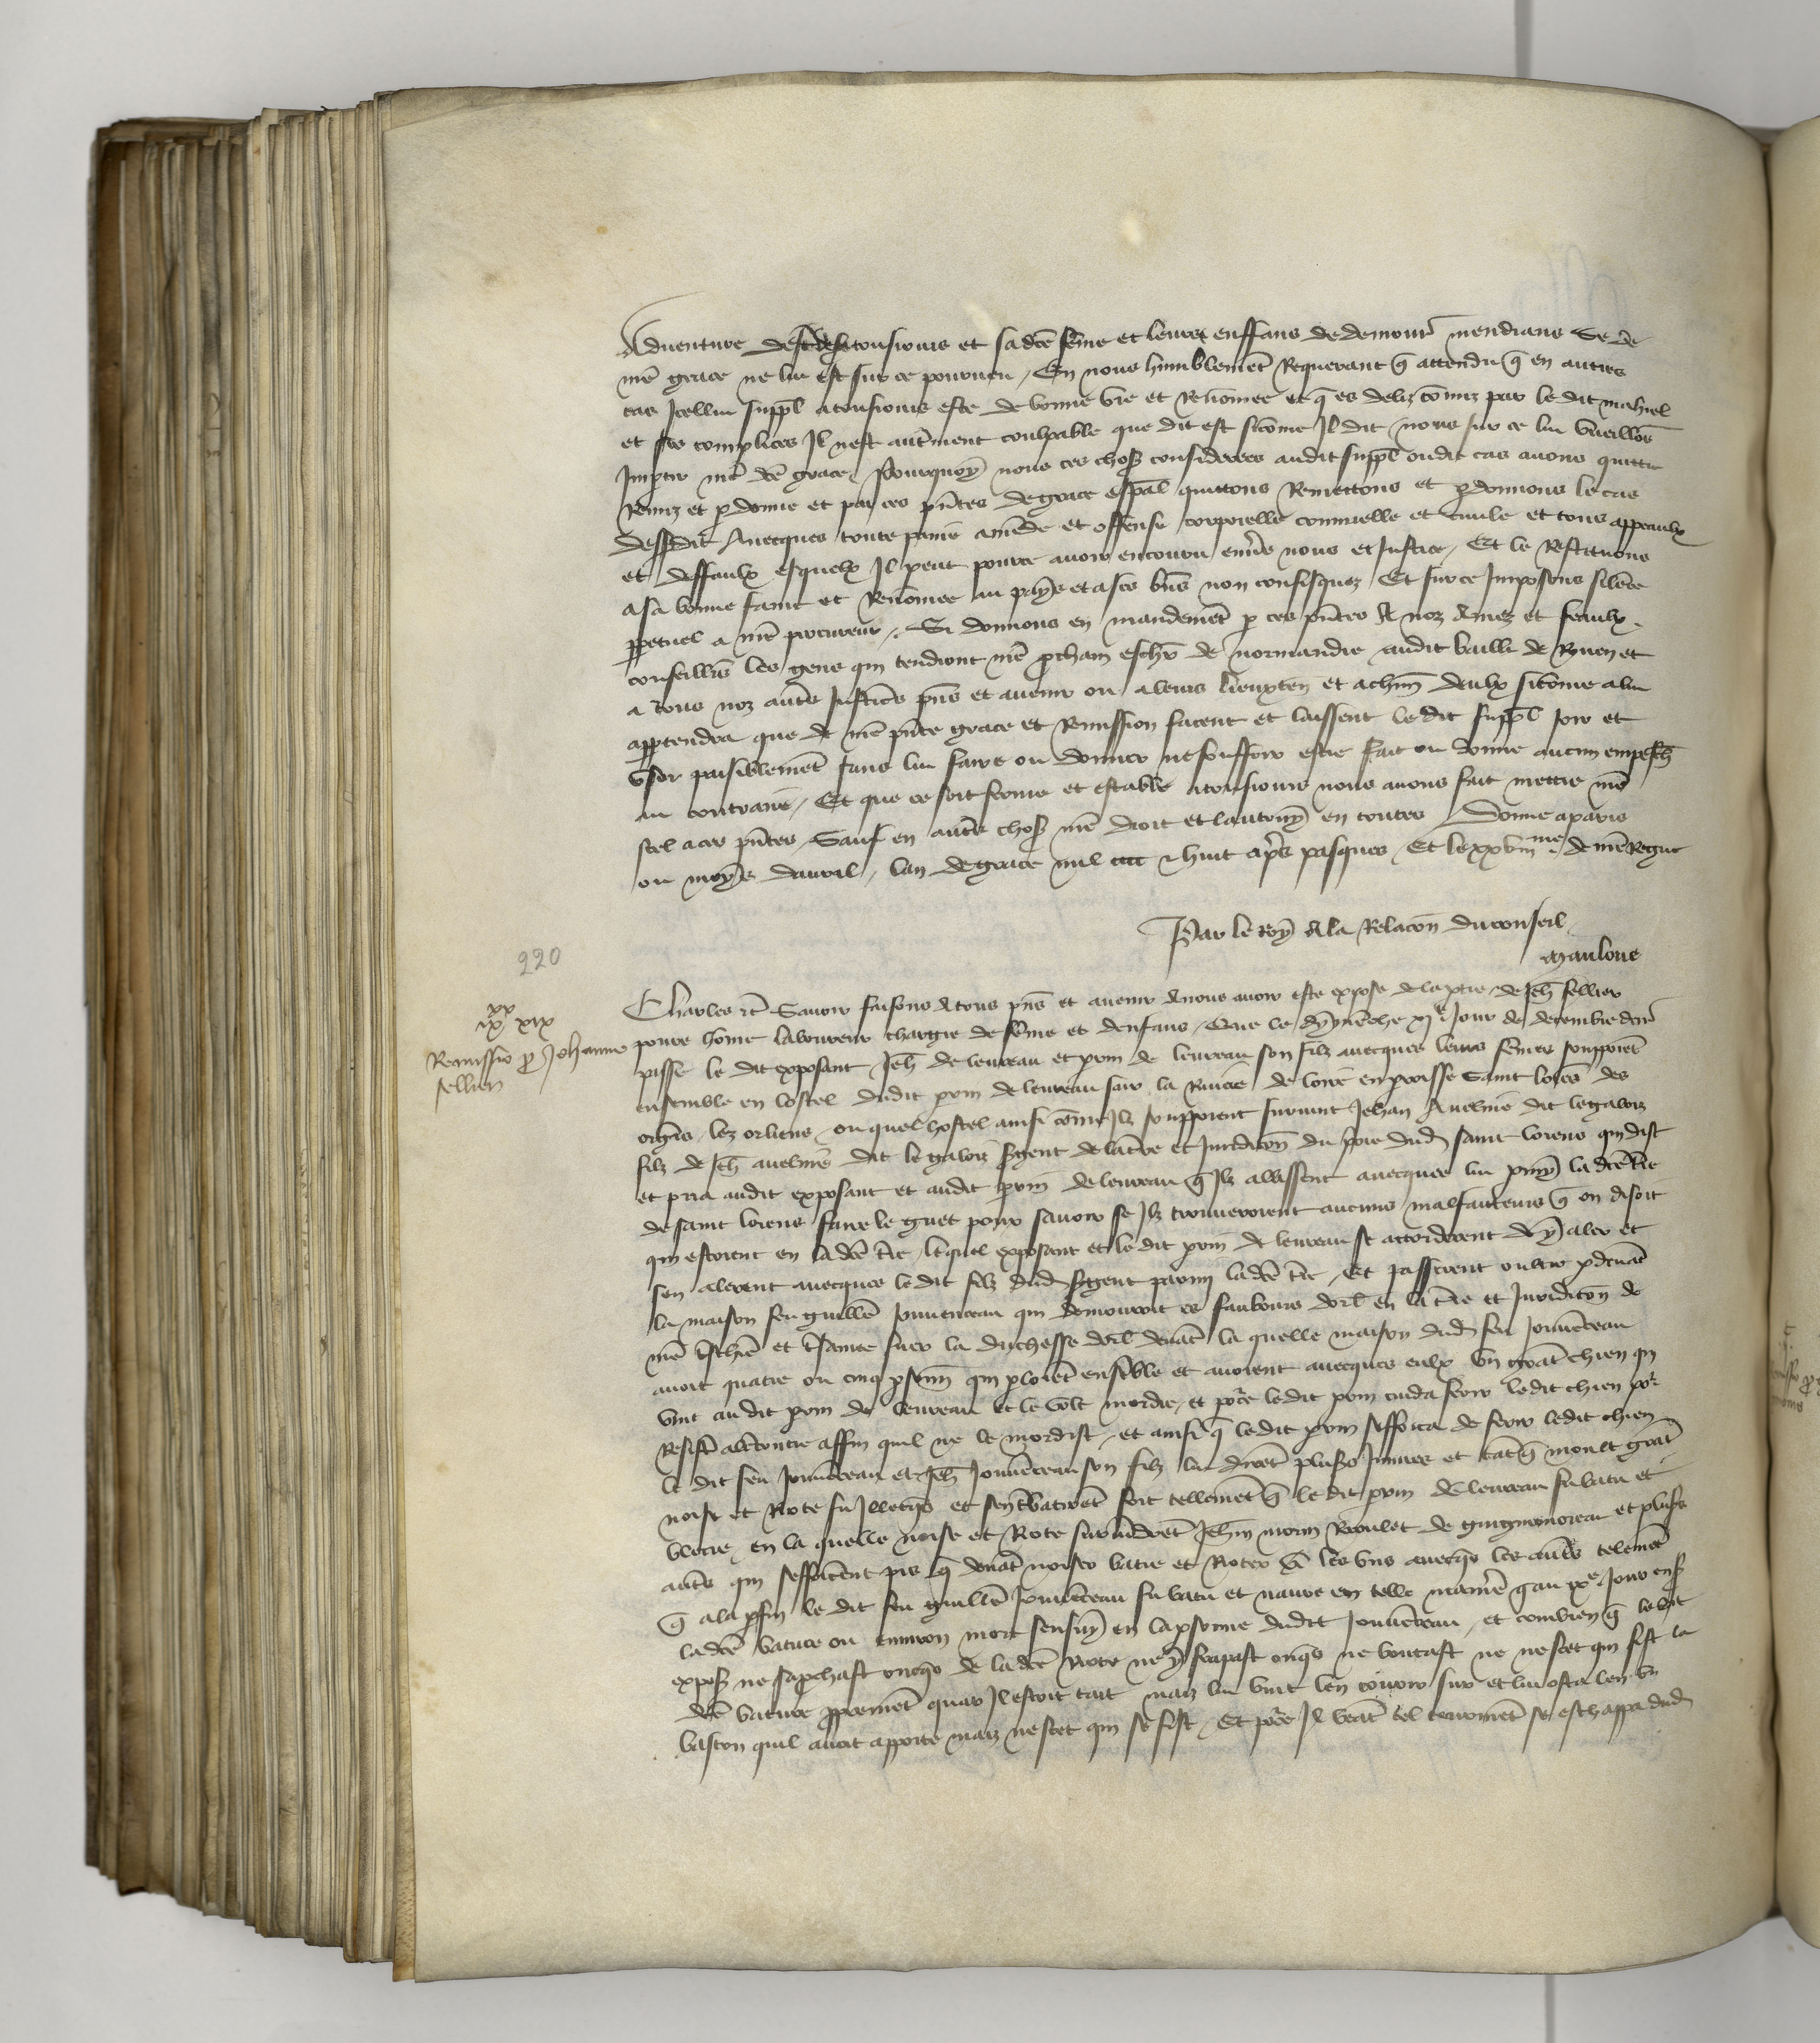 Aduenture destre atousiours et sa dcē fēme et leurs enffans de demourr mendians Se de
nrē grace ne lui est sur ce pourueu / En nous humblemēt Requerant q̄ attendu q̄ en autres
cas Icellui suppl atousiours este de bonne vie et Renōmee et q̄ es deliz cōmiz par le dit mahiel
et ses complices Il nest autrment coulpable que dit est sicōme Il dit / nous sur ce lui vueillōs
Impartir nrē dcē grace / Pourquoy nous ces choses considerees audit suppl oudit cas auons quitte
Remiz et pdonne et par ces pn̄tes de grace esp̄al quittons Remettons et pdonnons le cas
dessusdit Auecques toute paine amēde et offense corporelle criminelle et ciuile et tous appeaulx
et deffaulx esquelx Il peut pour ce auoir encouru enuers nous et Justice / Et le Restituons
a sa bonne fame et Renōmee au pays et a ses biēs non confisquez / Et sur ce Imposons silēce
ppetuel a nrē procureur / Si donnons en mandemēt p ces pn̄tes A noz Amez et feaulx
conseillrs les gens qui tendront nrē prchain eschiqr de normandie audit bailli de Rouen et
a tous noz autrs Justicrs pn̄s et auenir ou a leurs lieuxten et a chūn deulx sicōme a lui
apptendra que de nrē pn̄te grace et Remission facent et laissent le dit suppl Joir et
vser paisiblemēt sans lui faire ou donner ne souffrir estre fait ou donne aucun empesch
au contraire / Et que ce soit ferme et estable atousiours nous auons fait mettre nrē
seel a ces pn̄tes Sauf en autrs choses nrē droit et lautruy en toutes / Donne a paris
ou moys dauril / lan de grace mil cccc & huit aprs pasques / Et le xxviii me de nrē Regne
Par le Roy A la Relacōn du conseil
Manloue
220
xx
ix xix
Remissio p Johanne
sellier
Charles &c Sauoir faisons A tous pn̄s et auenir A nous auoir este expose de la ptie de Jeh sellier
poure hōme laboureur chargie de fēme et denfans / Que le dymēche xje Jour de decembre derr
passe le dit exposant Jeh de leureau et prin de leureau son filz auecques leurs fēmes souppoiēt
ensemble en lostel dudit prin de leureau sur la Riuiere de loire en proisse Saint lorēs des
orgrs / lez orliens / ou quel hostel ainsi cōme Ilz souppoient suruint Jehan Auelme dit legalois
filz de Jeh auelme dit le galois Sergent de la tre et Juridicōn du prieur dud saint lorens qui dist
et pria audit exposant et audit prin de leureau q̄ Ilz alassent auecques lui prmy la dcē tre
de saint lorens faire le guet pour sauoir se Ilz trouueroient aucuns malfaicteurs q̄ on disoit
qui estoient en la dcē tre / lequel exposant et le dit prin de leureau se accorderent dy aler et
sen alerent auecques le dit filz dud Sergent parmi la dcē tre / Et passerent oultre pdeuāt
la maison feu guillē Jouuenceau qui demouroit es faubours dorl en la tre et Juridicōn de
nrē trschiere et tresamee suer la duchesse dorl deuāt la quelle maison dud feu Jouuēceau
auoit quatre ou cinq psonn qui ploiēt ensēble et auoient auecques eulx vn grāt chien qui
vint au dit prin de leureau et le volt mordre / et pour ce le dit prin cuida ferir le dit chien por
Resistr alēcontre affin quil ne le mordist / et ainsi q̄ le dit prin sefforca de ferir ledit chien
le dit feu Jouuēceau et Jeh Jouuēceau son filz lui dirēt plusrs Iniures et tāt q̄ moult grāt
noise et Riote fu Illecqs et sentrebatirēt fort tellemēt q̄ le dit prin de leureau fu batu et
blecie / en la quelle noise et Riote suruindrēt Jehn morin Raoulet de guignemoreau et plusrs
autrs qui sefforcērent pis q̄ deuāt noiser batre et Rioter les vns auecqs les autrs telemēt
q̄ a la pfin le dit feu guillē Jouuēceau fu batu et naure en telle maniere q̄ au ixe Jour ensu
la dcē bature ou enuiron mort sensuy en la psonne dudit Jouuēceau / et combien q̄ le dit
expos ne saprchast oncqs de la dcē Riote ne y frapast oncqs ne boutast ne ne scet qui fist la
dcē bature prprement quar Il estoit tart maiz lui vint len courir sur et lui osta len vn
baston quil auoit apporte maiz ne scet qui se fist / Et pour ce Il veāt tel tourmēt se eschappa dud